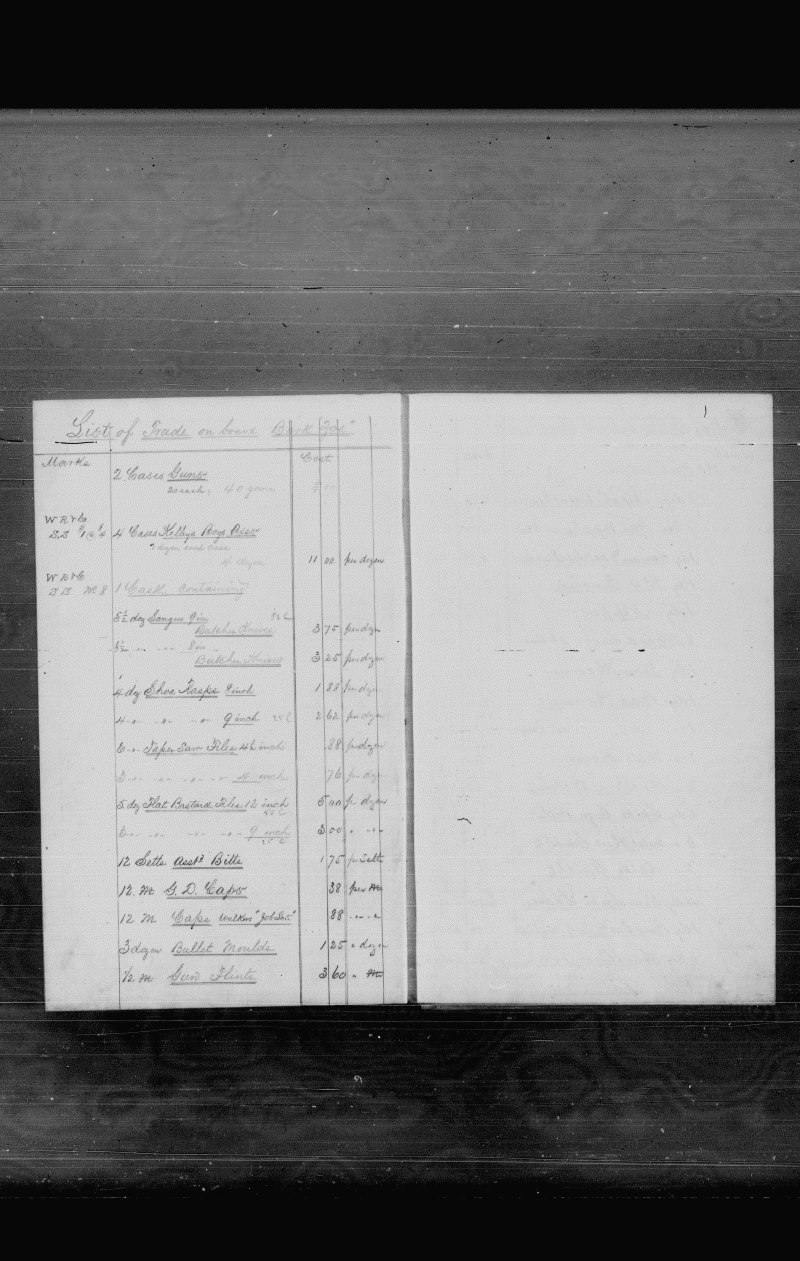 List of Trade on board Bark "Zoe"
Marks Cost
2 Cases Guns
20 each, 40 guns 00
W R & Co
4 Cases Kellys Boys Axes
dozen each case
4 dozen 11 00 per dozen
W R & Co
1 Cask containing
5½ doz Sangus 9 in
Butcher Knives 3 75 per dozen
8 in
Butcher Knives 3 25 per dozen
4 doz Shoe Rasps 8 inch 1 88 per dozen
4 -"- -"- -"- 9 inch 2 62 per dozen
6 -"- Taper Saw Files 4½ inch 88 pr dozen
-"- -"- -"- -"- 4 inch 76 pr dozen
5 doz Flat Bastard Files 12 inch 5 00 pr dozen
-"- -"- -"- -"- 9 inch 3 00 " -"-
12 Setts Asstd Bitts 1 75 pr Setts
12 M G. D. Caps 38 per M
12 M Caps Walkers 88 -"- "
3 dozen Bullet Moulds 1 25 " dozen
½ M Gun Flints 3 60 " M